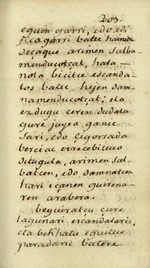 203.
eguin oparri, edo edi-
ficagarri batec hainitz
deçaque arimen salba-
menducotçat, hala-
nola bicitce escanda-
los batec hejen dam-
namenducotçat; eta
ez dugu ceren dudatu
gure jujea gane
sari, edo cigorrada
berciac eracibitceco
ditugula, arimen sal-
batcen, edo damnatcen
hari içanen guirena-
ren arabera.
Beguiratcu cure
lagunari escandalaric,
eta bekhatu eguiteco
paradaric batere